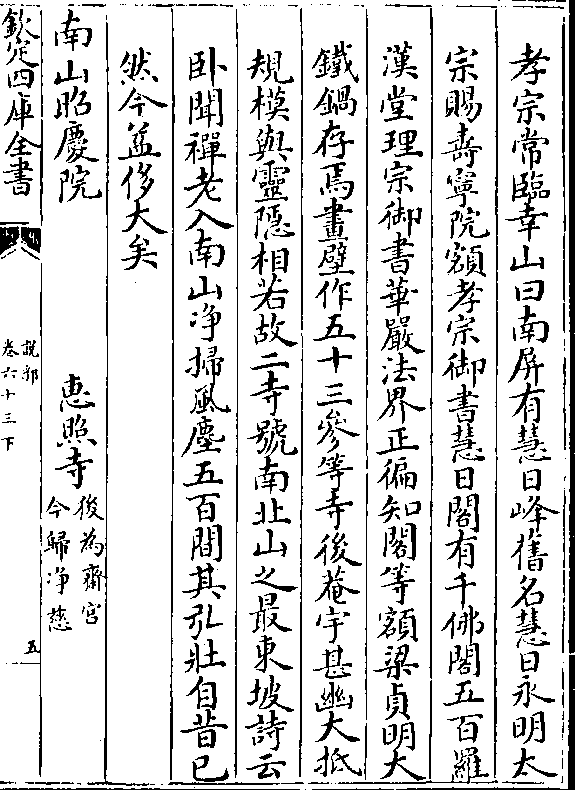 孝宗常臨幸山曰南屏有慧日峰舊名慧日永明太
宗賜壽寧院額孝宗御書慧日閣有千佛閣五百羅
漢堂理宗御書華嚴法界正徧知閣等額梁貞明大
鐵鍋存焉畫壁作五十三參等寺後菴宇甚幽大抵
規模與靈隠相若故二寺號南北山之最東坡詩云
卧聞禪老入南山净掃風塵五百間其弘壯自昔已
然今益侈大矣
南山昭慶院
惠照寺
後為齋宮
今歸净慈
欽定四庫全書
說郛
卷六十三下
五